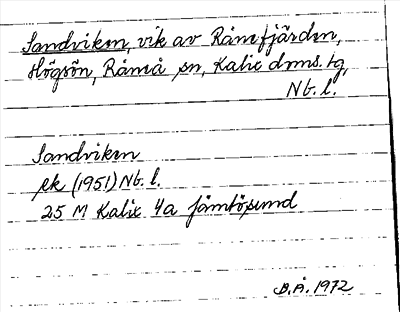 Sandviken, vik av Rånefjärden,
Högsön, Råneå sn, Kalix dms. tg,
Nb. l.
Sandviken
ek (1951) Nb. l.
25 M Kalix 4a Jämtösund
B.Å. 1972